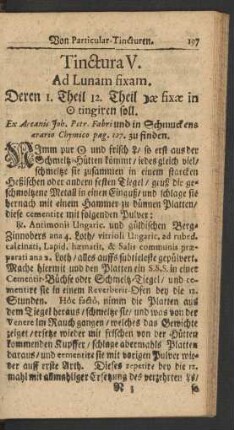 Von Particular-Tincturen. 197
Tinctura V.
Ad Lunam fixam.
Deren 1. Theil 12. Theil ☽æ fixæ in
☉ tingiren soll.
Ex Arcanis Joh. Petr. Fabri und in Schmuckens
ærario Chymico pag. 127. zu finden.
NImm pur ☉ und frisch so erst aus der
Schmeltz-Hütten kommt / jedes gleich viel /
schmeltze sie zusammen in einem starcken
Heßischen oder andern festen Tiegel / geuß die ge-
schmoltzene Metall in einen Einguß / und schlage sie
hernach mit einem Hammer zu dünnen Platten /
diese cementire mit folgenden Pulver:
℞. Antimonii Ungaric. und güldischen Berg-
Zinnobers ana 4. Loth / vitrioli Ungaric. ad rubed.
calcinati, Lapid. hæmatit. & Salis communis præ-
parati ana 2. Loth / alles auffs subtieleste gepülvert.
Mache hiermit und den Platten ein S.S.S. in einer
Cementir-Büchse oder Schmeltz-Tiegel / und ce-
mentire sie in einem Reverberir-Ofen bey die 12.
Stunden. Hôc factô, nimm die Platten aus
dem Tiegel heraus / schmeltze sie / und was von der
Venere im Rauch gangen / welches das Gewichte
zeiget / ersetze wieder mit frischen von der Hütten
kommenden Kupffer / schlage abermahls Platten
daraus / und cementire sie mit vorigen Pulver wie-
der auff erste Arth. Dieses repetire bey die 12.
mahl mit allmähliger Ersetzung des verzehrten
N 3 so